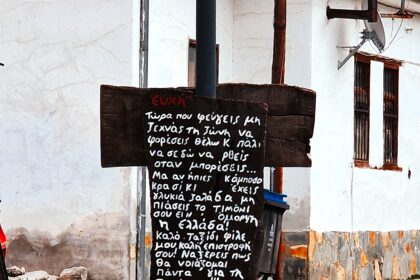 ΕΥΧΗ
Τώρα που φεύγεις μη
ξεχνάς τη ζώνη να
φορέσεις θέλω κ πάλι
να σε δω να ρθεις
οταν μπορέσεις...
Μα αν ήπιες κάμποσο
κρασί κι έχεις
γλυκιά ζαλάδα μη
πιάσεις το τιμόνι
σου ειν' όμορφη
η Ελλάδα!
καλό ταξίδι φίλε
μου, καλή επιστροφή
σου! Να ξέρεις πως
θα νοιαζομαι
πάντα για τη